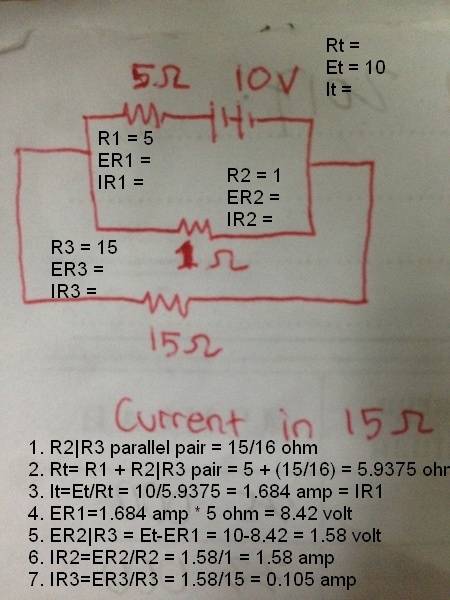 Rt =
Et = 10
It =
5Ω 10V
R1 = 5
ER1 =
IR1 =
R2 = 1
ER2 =
IR2 =
1 Ω
R3 = 15
ER3 =
IR3 =
15Ω
Current in 15Ω
1. R2|R3 parallel pair = 15/16 ohm
2. Rt= R1 + R2|R3 pair = 5 + (15/16) = 5.9375 ohm
3. It=Et/Rt = 10/5.9375 = 1.684 amp = IR1
4. ER1=1.684 amp * 5 ohm = 8.42 volt
5. ER2|R3 = Et-ER1 = 10-8.42 = 1.58 volt
6. IR2=ER2/R2 = 1.58/1 = 1.58 amp
7. IR3=ER3/R3 = 1.58/15 = 0.105 amp